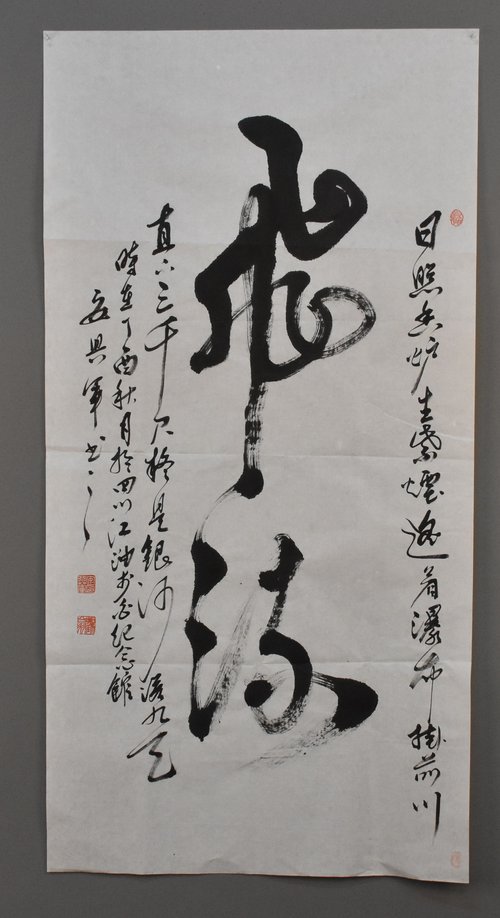 日照香炉生紫煙遥看瀑布掛前川
飛流
直下三千尺疑是銀河落九天
時在丁酉秋月於四川江油李白紀念館
安興軍书之